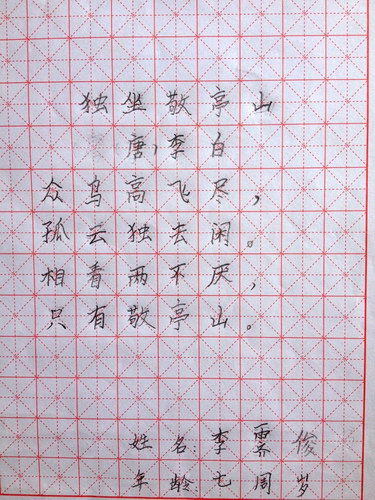 独坐敬亭山
唐,李白
众鸟高飞尽,
孤云独去闲。
相看两不厌,
只有敬亭山。
姓名:李霁俊
年龄:七周岁